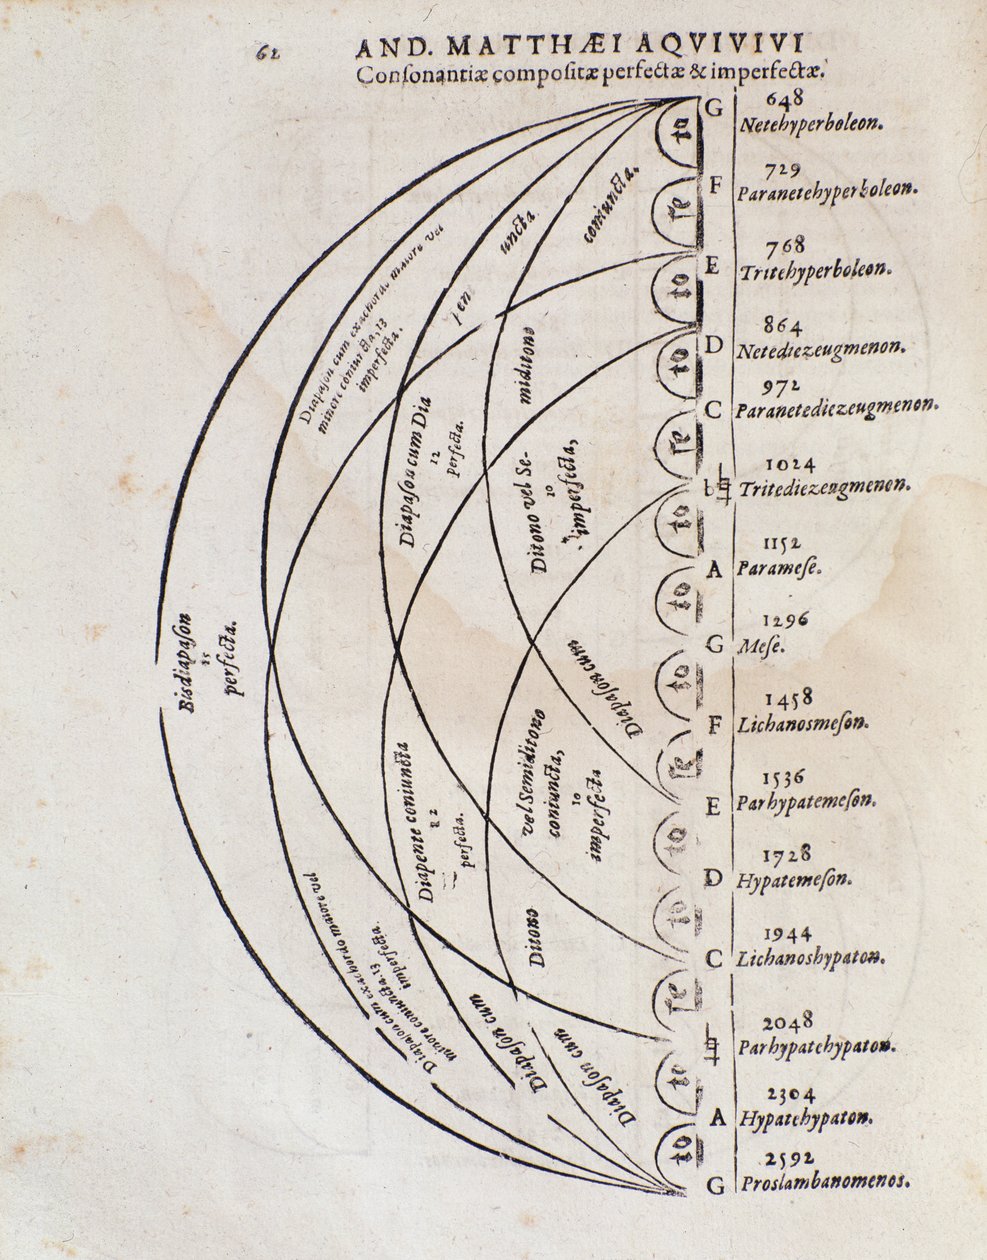 62
AND. MATTHÆI AQVIVIVI
Conſonantiæ compoſitæ perfectæ & imperfectæ.
G 648
Netehyperboleon.
to
F 729
Paranetehyperboleon.
re
E 768
Tritehyperboleon.
to
D 864
Netediezeugmenon.
to
C 972
Paranetediezeugmenon.
re
b♮ 1024
Tritediezeugmenen.
to
A 1152
Parameſe.
to
G 1296
Meſe.
to
F 1458
Lichanosmeſon.
re
E 1536
Parhypatemeſon.
to
D 1728
Hypatemeſon.
to
C 1944
Lichanoshypaton.
re
♮ 2048
Parhypatehypaton.
to
A 2304
Hypatehypaton.
to
G 2592
Proslambanomenos.
Bisdiapaſon
15
perfecta.
Diapaſon cum exachordo maiore vel
minore coniuncta, 13
imperfecta.
Diapaſon cum Dia
pen
uncta
12
perfecta.
Ditono vel Se-
miditono
coniuncta.
10
imperfecta,
Diapaſon cum
Diapaſon cum exachordo maiore vel
minore coniuncta. 13
imperfecta.
Diapaſon cum
Diapente coniuncta
12
perfecta.
Diapaſon cum
Ditono
vel Semiditono
coniuncta,
10
imperfecta